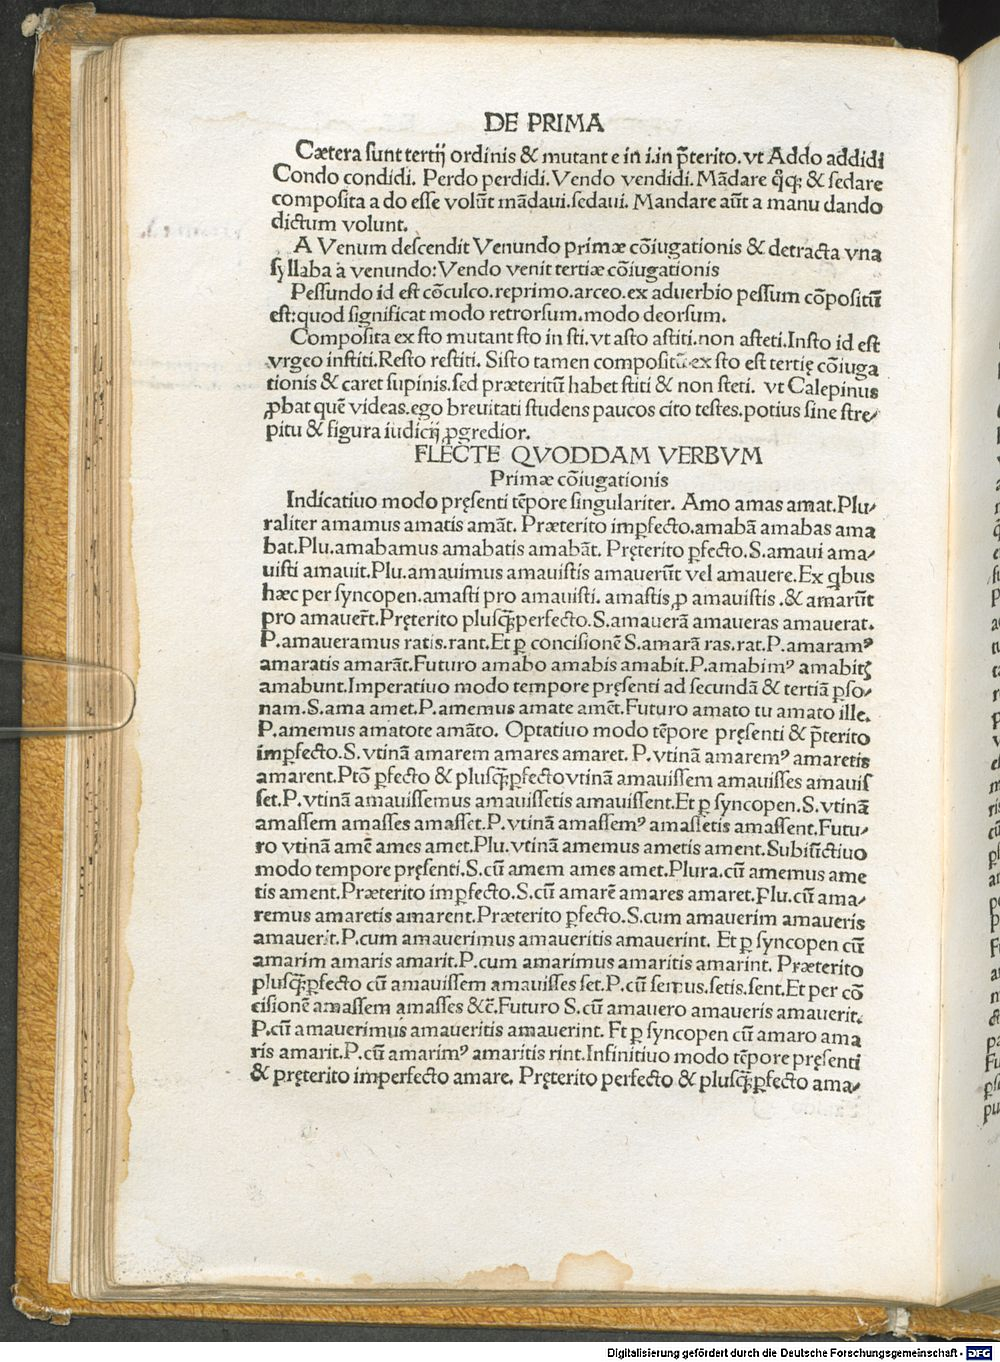 DE PRIMA
Cætera sunt tertij ordinis & mutant e in i.in p̃terito.vt Addo addidi
Condo condidi. Perdo perdidi.Vendo vendidi.Mãdare qq̃ꝫ & sedare
composita a do esse volũt mãdaui.sedaui. Mandare aũt a manu dando
dictum volunt.
A Venum descendit Venundo primæ cõiugationis & detracta vna
syllaba a venundo:Vendo venit tertiæ cõiugationis
Pessundo id est cõculco.reprimo.arceo.ex aduerbio pessum cõpositũ
est:quod significat modo retrorsum.modo deorsum.
Composita ex sto mutant sto in sti.vt asto astiti.non asteti.Insto id est
vrgeo institi.Resto restiti. Sisto tamen compositũ ex sto est tertię cõiuga
tionis & caret supinis.sed præteritũ habet stiti & non steti. vt Calepinus
ꝓbat quẽ videas.ego breuitati studens paucos cito testes.potius sine stre/
pitu & figura iudicij ꝓgredior.
FLECTE QVODDAM VERBVM
Primæ cõiugationis
Indicatiuo modo pręsenti tẽpore singulariter. Amo amas amat.Plu/
raliter amamus amatis amãt. Præterito imꝑfecto.amabã amabas ama
bat.Plu.amabamus amabatis amabãt. Pręterito ꝑfecto.S.amaui ama/
uisti amauit.Plu.amauimus amauistis amauerũt vel amauere.Ex qbus
hæc per syncopen.amasti pro amauisti. amastis ꝓ amauistis .& amarũt
pro amauert̃.Pręterito plusq̃ꝫperfecto.S.amauerã amaueras amauerat.
P.amaueramus ratis.rant.Et ꝑ concisionẽ S.amarã ras.rat.P.amaramꝰ
amaratis amarãt.Futuro amabo amabis amabit.P.amabimꝰ amabitꝭ
amabunt.Imperatiuo modo tempore pręsenti ad secundã & tertiã ꝑso/
nam.S.ama amet.P.amemus amate amẽt.Futuro amato tu amato ille.
P.amemus amatote amãto. Optatiuo modo tẽpore pręsenti & p̃terito
imꝑfecto.S.vtinã amarem amares amaret. P.vtinã amaremꝰ amaretis
amarent.Ptõ ꝑfecto & plusq̃ꝫꝑfecto vtinã amauissem amauisses amauis
set.P.vtinã amauissemus amauissetis amauissent.Et ꝑ syncopen.S.vtinã
amassem amasses amasset.P.vtinã amassemꝰ amassetis amassent.Futu/
ro vtinã amẽ ames amet.Plu.vtinã amemus ametis ament.Subiũctiuo
modo tempore pręsenti.S.cũ amem ames amet.Plura.cũ amemus ame
tis ament.Præterito imꝑfecto.S.cũ amarẽ amares amaret.Plu.cũ ama/
remus amaretis amarent.Præterito ꝑfecto.S.cum amauerim amaueris
amauerit.P.cum amauerimus amaueritis amauerint. Et ꝑ syncopen cũ
amarim amaris amarit.P.cum amarimus amaritis amarint. Præterito
plusq̃ꝫꝑfecto cũ amauissem amauisses set.P.cũ semus.setis.sent.Et per cõ
cisionẽ amassem amasses &c̃.Futuro S.cũ amauero amaueris amauerit.
P.cũ amauerimus amaueritis amauerint. Et ꝑ syncopen cũ amaro ama
ris amarit.P.cũ amarimꝰ amaritis rint.Infinitiuo modo tẽpore pręsenti
& pręterito imperfecto amare. Pręterito perfecto & plusq̃ꝫꝑfecto ama/
Digitalisierung gefördert durch die Deutsche Forschungsgemeinschaft - DFG